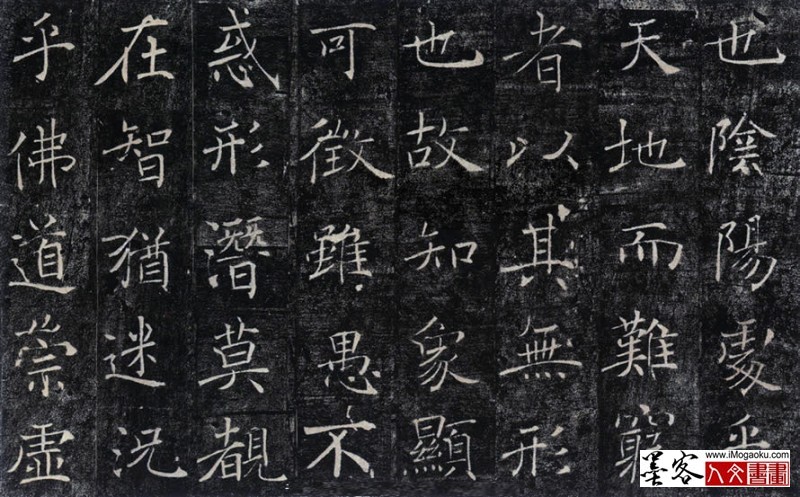 也陰陽處乎
天地而難窮
者以其無形
也故知象顯
可徵雖愚不
惑形潛莫覩
在智猶迷況
乎佛道崇虛
墨客
www.iMogaoku.com
人文書畫